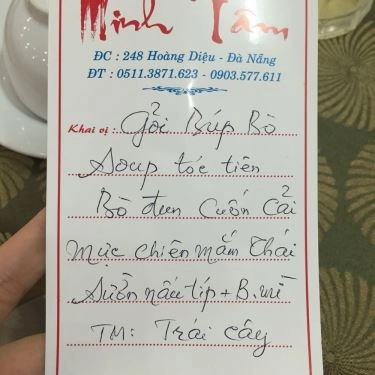 Minh Tâm
ĐC : 248 Hoàng Diệu - Đà Nẵng
ĐT : 0511.3871.623 - 0903.577.611
Khai vị : Gỏi Búp Bò
Soup tóc tiên
Bò đun cuốn cải
Mực chiên mắm Thái
Sườn nấu típ + B. mì
TM: Trái cây